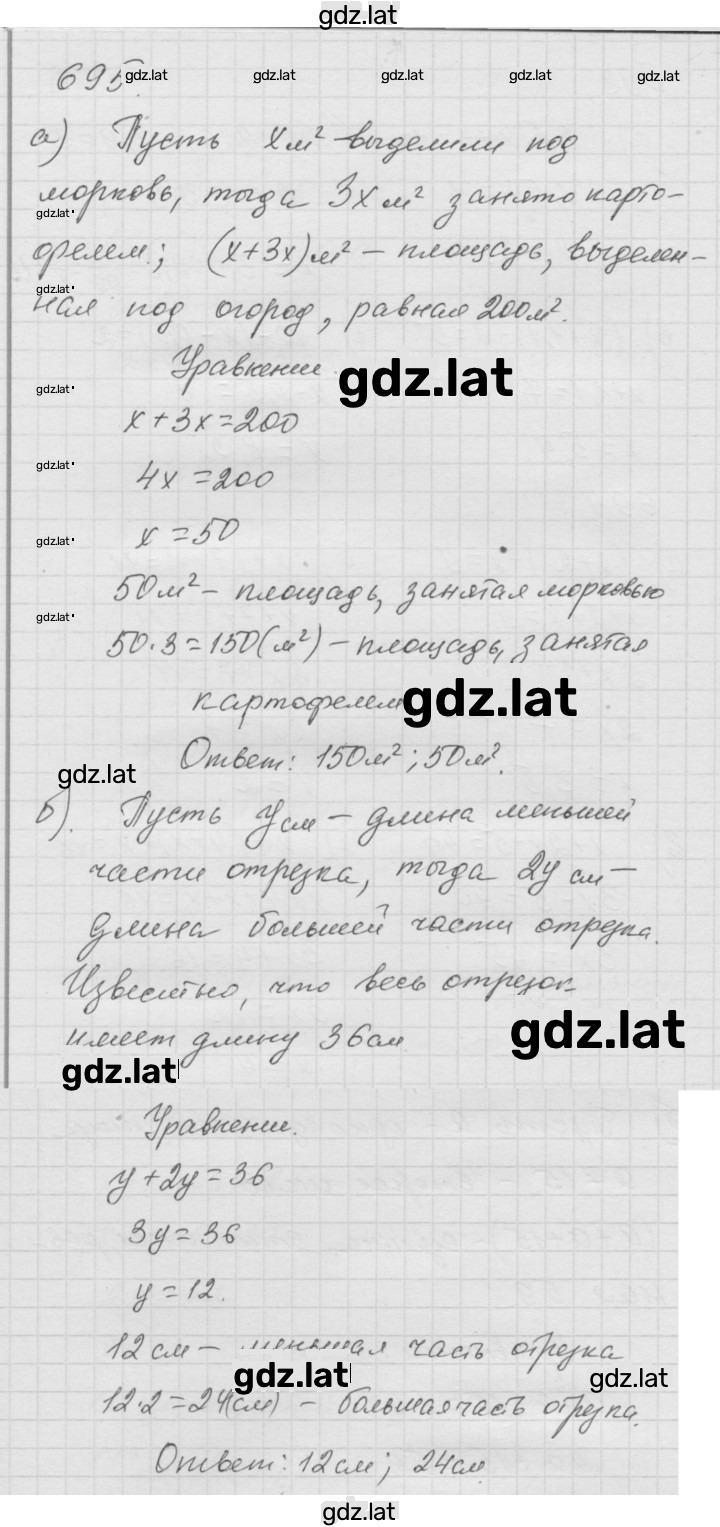 gdz.lat
695.
gdz.lat gdz.lat gdz.lat gdz.lat gdz.lat
а) Пусть х м² выделили под
морковь, тогда 3х м² занято карто-
gdz.lat
фелем; (х+3х) м² – площадь, выделен-
gdz.lat
ная под огород, равная 200 м².
Уравнение
gdz.lat
gdz.lat
х + 3х = 200
gdz.lat
4х = 200
gdz.lat
х = 50
50 м² – площадь, занятая морковью
gdz.lat
50·3 = 150 (м²) – площадь, занятая
картофелем
gdz.lat
Ответ: 150 м²; 50 м².
gdz.lat
б). Пусть у см – длина меньшей
части отрезка, тогда 2у см –
длина большей части отрезка.
Известно, что весь отрезок
имеет длину 36 см
gdz.lat
gdz.lat
Уравнение.
у + 2у = 36
3у = 36
у = 12.
12 см – меньшая часть отрезка
gdz.lat
gdz.lat
12·2 = 24 (см) – большая часть отрезка.
Ответ: 12 см; 24 см
gdz.lat